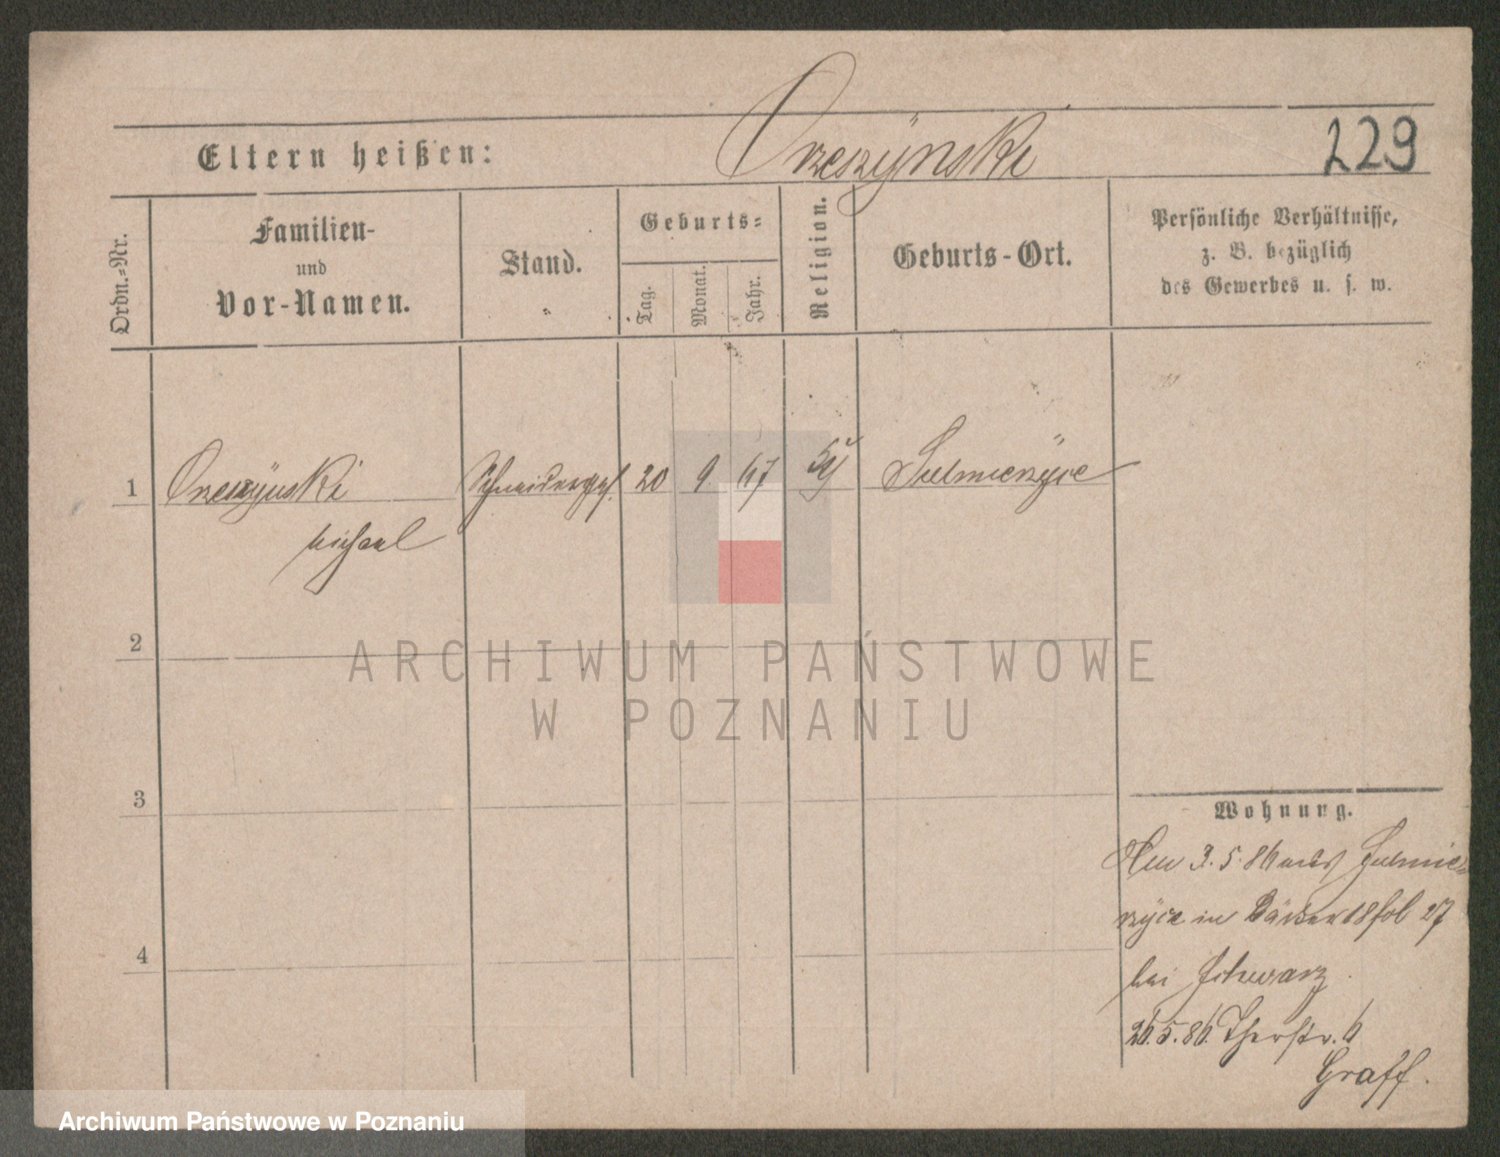 229
Eltern heißen: Orzeszÿnski
Ordn.-Nr.
Familien-
und
Vor-Namen.
Stand.
Geburts-
Tag.
Monat.
Jahr.
Religion.
Geburts-Ort.
Persönliche Verhältnisse,
z. B. bezüglich
des Gewerbes u. s. w.
1 Orzeszÿnski Schneiderges. 20 9 67 Sulmierzÿce
Michael
2
3
4
Wohnung.
3.5.86 aus Sulmie-
rzÿce in 18 fol 27
bei Schwarz.
26.5.86. Thorstr. 6
Graff.
ARCHIWUM PAŃSTWOWE
W POZNANIU
Archiwum Państwowe w Poznaniu